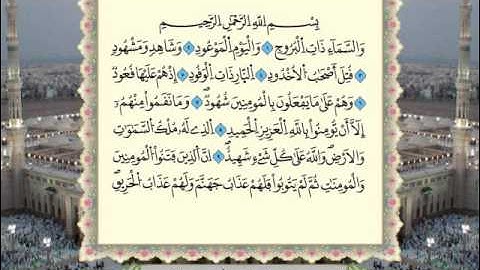 بِسْمِ اللَّهِ الرَّحْمَٰنِ الرَّحِيمِ
وَالسَّمَاءِ ذَاتِ الْبُرُوجِ ١ وَالْيَوْمِ الْمَوْعُودِ ٢ وَشَاهِدٍ وَمَشْهُودٍ
٣ قُتِلَ أَصْحَابُ الْأُخْدُودِ ٤ النَّارِ ذَاتِ الْوَقُودِ ٥ إِذْ هُمْ عَلَيْهَا قُعُودٌ
٦ وَهُمْ عَلَىٰ مَا يَفْعَلُونَ بِالْمُؤْمِنِينَ شُهُودٌ ٧ وَمَا نَقَمُوا مِنْهُمْ
إِلَّا أَنْ يُؤْمِنُوا بِاللَّهِ الْعَزِيزِ الْحَمِيدِ ٨ الَّذِي لَهُ مُلْكُ السَّمَٰوَٰتِ
وَالْأَرْضِ وَاللَّهُ عَلَىٰ كُلِّ شَيْءٍ شَهِيدٌ ٩ إِنَّ الَّذِينَ فَتَنُوا الْمُؤْمِنِينَ
وَالْمُؤْمِنَٰتِ ثُمَّ لَمْ يَتُوبُوا فَلَهُمْ عَذَابُ جَهَنَّمَ وَلَهُمْ عَذَابُ الْحَرِيقِ